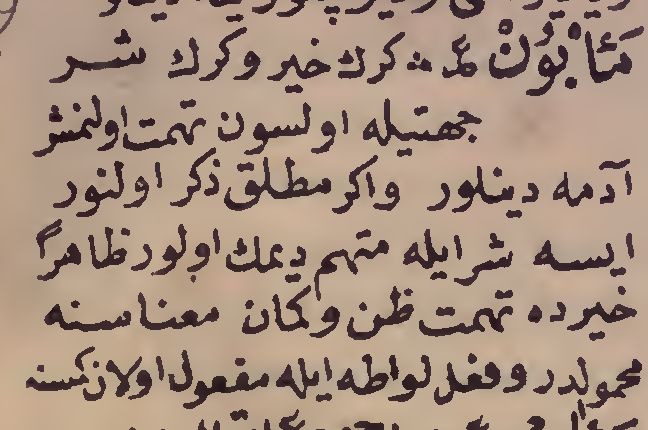 مَئابُونْ عگ کرك خیر وکرك شر
جهتیله اولسون تهمت اولنمش
آدمه دینلور واکر مطلق ذکر اولنور
ایسه شرایله متهم دیمك اولور ظاهراً
خیرده تهمت ظن وکمان معناسنه
محمولدر وفعل لواطه ایله مفعول اولان کمسنه